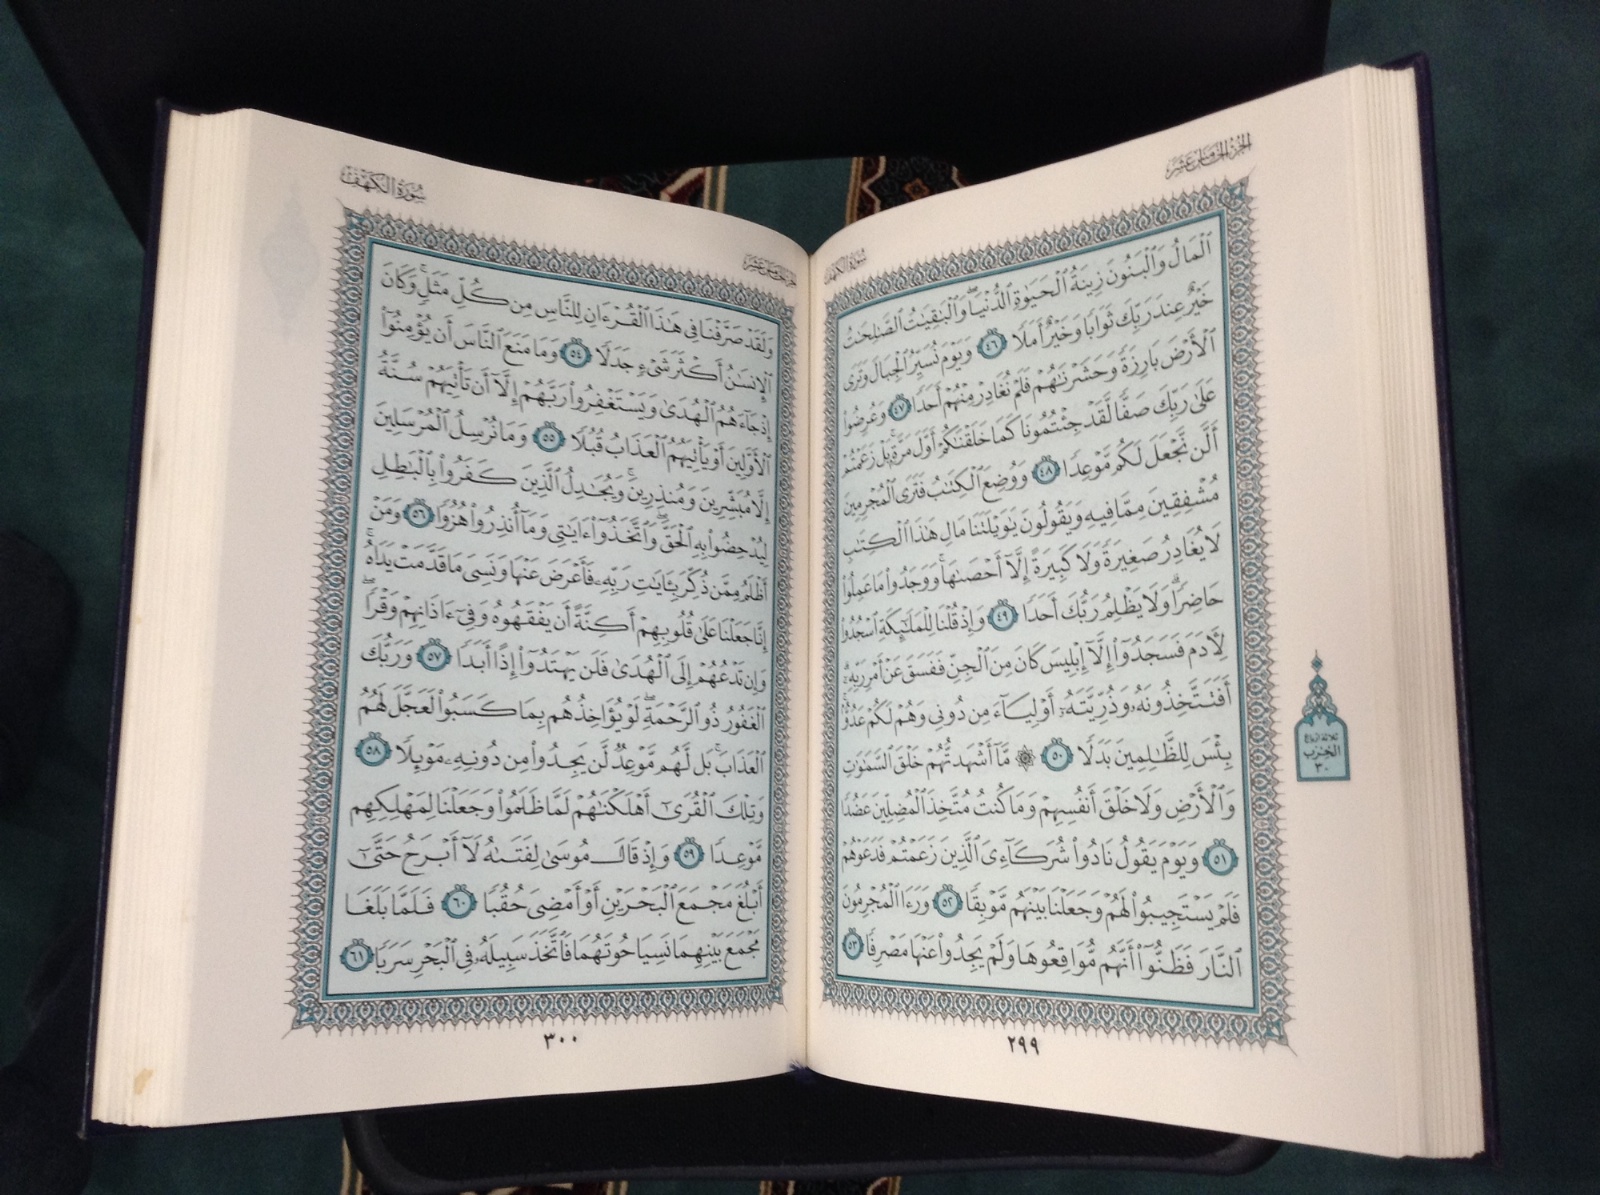 الجزء الخامس عشر
سورة الكهف
ٱلْمَالُ وَٱلْبَنُونَ زِينَةُ ٱلْحَيَوٰةِ ٱلدُّنْيَا ۖ وَٱلْبَٰقِيَٰتُ ٱلصَّٰلِحَٰتُ
خَيْرٌ عِندَ رَبِّكَ ثَوَابًا وَخَيْرٌ أَمَلًا ٤٦ وَيَوْمَ نُسَيِّرُ ٱلْجِبَالَ وَتَرَى
ٱلْأَرْضَ بَارِزَةً وَحَشَرْنَٰهُمْ فَلَمْ نُغَادِرْ مِنْهُمْ أَحَدًا ٤٧ وَعُرِضُوا۟
عَلَىٰ رَبِّكَ صَفًّا لَّقَدْ جِئْتُمُونَا كَمَا خَلَقْنَٰكُمْ أَوَّلَ مَرَّةٍۭ ۚ بَلْ زَعَمْتُمْ
أَلَّن نَّجْعَلَ لَكُم مَّوْعِدًا ٤٨ وَوُضِعَ ٱلْكِتَٰبُ فَتَرَى ٱلْمُجْرِمِينَ
مُشْفِقِينَ مِمَّا فِيهِ وَيَقُولُونَ يَٰوَيْلَتَنَا مَالِ هَٰذَا ٱلْكِتَٰبِ
لَا يُغَادِرُ صَغِيرَةً وَلَا كَبِيرَةً إِلَّآ أَحْصَىٰهَا ۚ وَوَجَدُوا۟ مَا عَمِلُوا۟
حَاضِرًا ۗ وَلَا يَظْلِمُ رَبُّكَ أَحَدًا ٤٩ وَإِذْ قُلْنَا لِلْمَلَٰٓئِكَةِ ٱسْجُدُوا۟
لِءَادَمَ فَسَجَدُوٓا۟ إِلَّآ إِبْلِيسَ كَانَ مِنَ ٱلْجِنِّ فَفَسَقَ عَنْ أَمْرِ رَبِّهِۦٓ ۗ
أَفَتَتَّخِذُونَهُۥ وَذُرِّيَّتَهُۥٓ أَوْلِيَآءَ مِن دُونِى وَهُمْ لَكُمْ عَدُوٌّۢ ۚ
بِئْسَ لِلظَّٰلِمِينَ بَدَلًا ٥٠ ۞ مَّآ أَشْهَدتُّهُمْ خَلْقَ ٱلسَّمَٰوَٰتِ
وَٱلْأَرْضِ وَلَا خَلْقَ أَنفُسِهِمْ وَمَا كُنتُ مُتَّخِذَ ٱلْمُضِلِّينَ عَضُدًا
٥١ وَيَوْمَ يَقُولُ نَادُوا۟ شُرَكَآءِىَ ٱلَّذِينَ زَعَمْتُمْ فَدَعَوْهُمْ
فَلَمْ يَسْتَجِيبُوا۟ لَهُمْ وَجَعَلْنَا بَيْنَهُم مَّوْبِقًا ٥٢ وَرَءَا ٱلْمُجْرِمُونَ
ٱلنَّارَ فَظَنُّوٓا۟ أَنَّهُم مُّوَاقِعُوهَا وَلَمْ يَجِدُوا۟ عَنْهَا مَصْرِفًا ٥٣
ثلاثة أرباع
الحزب
٣٠
٢٩٩
الجزء الخامس عشر
سورة الكهف
وَلَقَدْ صَرَّفْنَا فِى هَٰذَا ٱلْقُرْءَانِ لِلنَّاسِ مِن كُلِّ مَثَلٍ ۚ وَكَانَ
ٱلْإِنسَٰنُ أَكْثَرَ شَىْءٍ جَدَلًا ٥٤ وَمَا مَنَعَ ٱلنَّاسَ أَن يُؤْمِنُوٓا۟
إِذْ جَآءَهُمُ ٱلْهُدَىٰ وَيَسْتَغْفِرُوا۟ رَبَّهُمْ إِلَّآ أَن تَأْتِيَهُمْ سُنَّةُ
ٱلْأَوَّلِينَ أَوْ يَأْتِيَهُمُ ٱلْعَذَابُ قُبُلًا ٥٥ وَمَا نُرْسِلُ ٱلْمُرْسَلِينَ
إِلَّا مُبَشِّرِينَ وَمُنذِرِينَ ۚ وَيُجَٰدِلُ ٱلَّذِينَ كَفَرُوا۟ بِٱلْبَٰطِلِ
لِيُدْحِضُوا۟ بِهِ ٱلْحَقَّ ۖ وَٱتَّخَذُوٓا۟ ءَايَٰتِى وَمَآ أُنذِرُوا۟ هُزُوًا ٥٦ وَمَنْ
أَظْلَمُ مِمَّن ذُكِّرَ بِـَٔايَٰتِ رَبِّهِۦ فَأَعْرَضَ عَنْهَا وَنَسِىَ مَا قَدَّمَتْ يَدَاهُ ۚ
إِنَّا جَعَلْنَا عَلَىٰ قُلُوبِهِمْ أَكِنَّةً أَن يَفْقَهُوهُ وَفِىٓ ءَاذَانِهِمْ وَقْرًا ۖ
وَإِن تَدْعُهُمْ إِلَى ٱلْهُدَىٰ فَلَن يَهْتَدُوٓا۟ إِذًا أَبَدًا ٥٧ وَرَبُّكَ
ٱلْغَفُورُ ذُو ٱلرَّحْمَةِ ۖ لَوْ يُؤَاخِذُهُم بِمَا كَسَبُوا۟ لَعَجَّلَ لَهُمُ
ٱلْعَذَابَ ۚ بَل لَّهُم مَّوْعِدٌ لَّن يَجِدُوا۟ مِن دُونِهِۦ مَوْئِلًا ٥٨
وَتِلْكَ ٱلْقُرَىٰٓ أَهْلَكْنَٰهُمْ لَمَّا ظَلَمُوا۟ وَجَعَلْنَا لِمَهْلِكِهِم
مَّوْعِدًا ٥٩ وَإِذْ قَالَ مُوسَىٰ لِفَتَىٰهُ لَآ أَبْرَحُ حَتَّىٰٓ
أَبْلُغَ مَجْمَعَ ٱلْبَحْرَيْنِ أَوْ أَمْضِىَ حُقُبًا ٦٠ فَلَمَّا بَلَغَا
مَجْمَعَ بَيْنِهِمَا نَسِيَا حُوتَهُمَا فَٱتَّخَذَ سَبِيلَهُۥ فِى ٱلْبَحْرِ سَرَبًا ٦١
٣٠٠